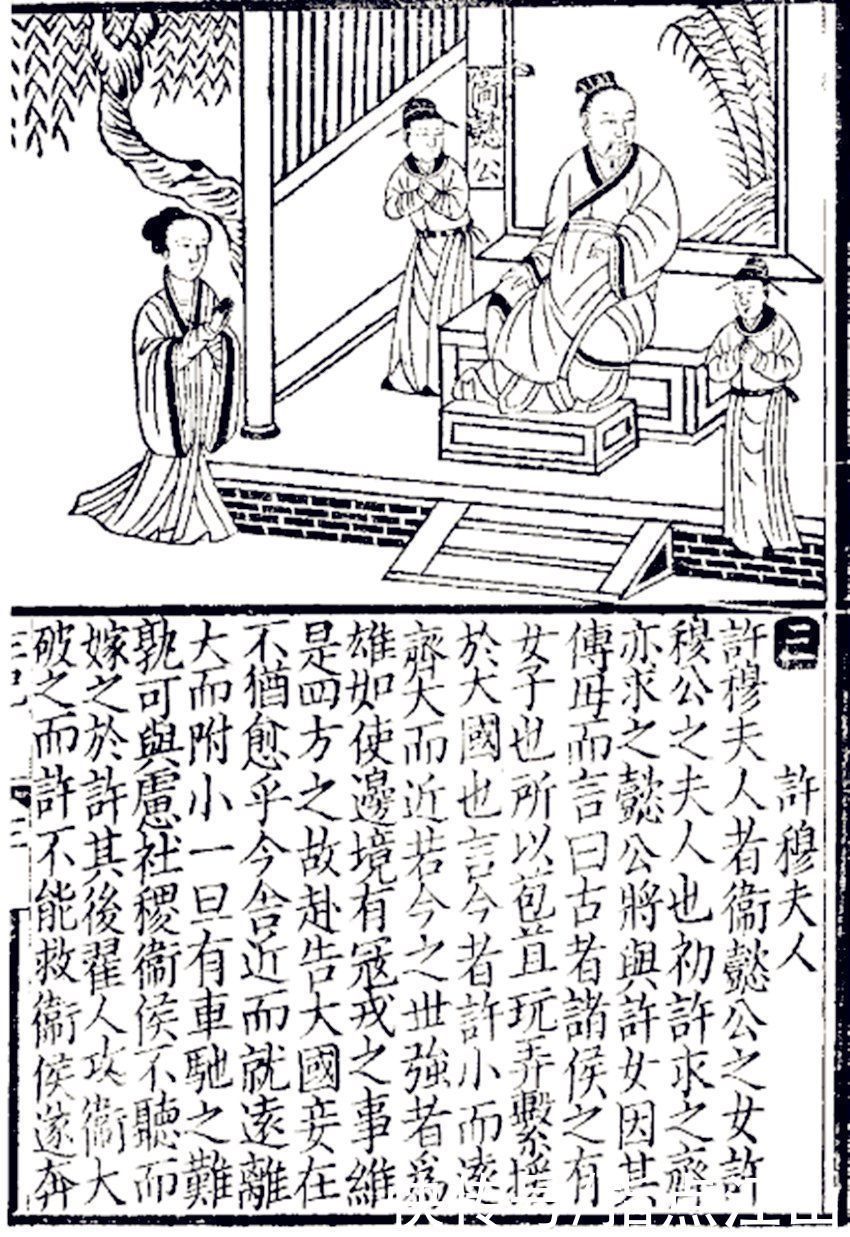 衞懿公
三 許穆夫人
許穆夫人者衞懿公之女許
穆公之夫人也初許求之齊
亦求之懿公將與許女因其
傅母而言曰古者諸侯之有
女子也所以苞苴玩弄繫援
於大國也言今者許小而遠
齊大而近若今之世強者爲
雄如使邊境有寇戎之事維
是四方之故赴告大國妾在
不猶愈乎今舍近而就遠離
大而附小一旦有車馳之難
孰可與慮社稷衞侯不聽而
嫁之於許其後翟人攻衞大
破之而許不能救衞侯遂奔